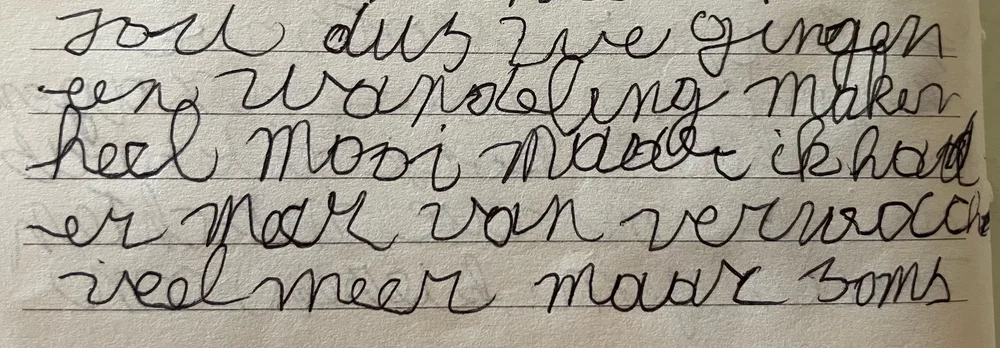 zou dus we gingen
een wandeling maken
heel mooi maar ik had
er maar van verwacht
veel meer maar soms